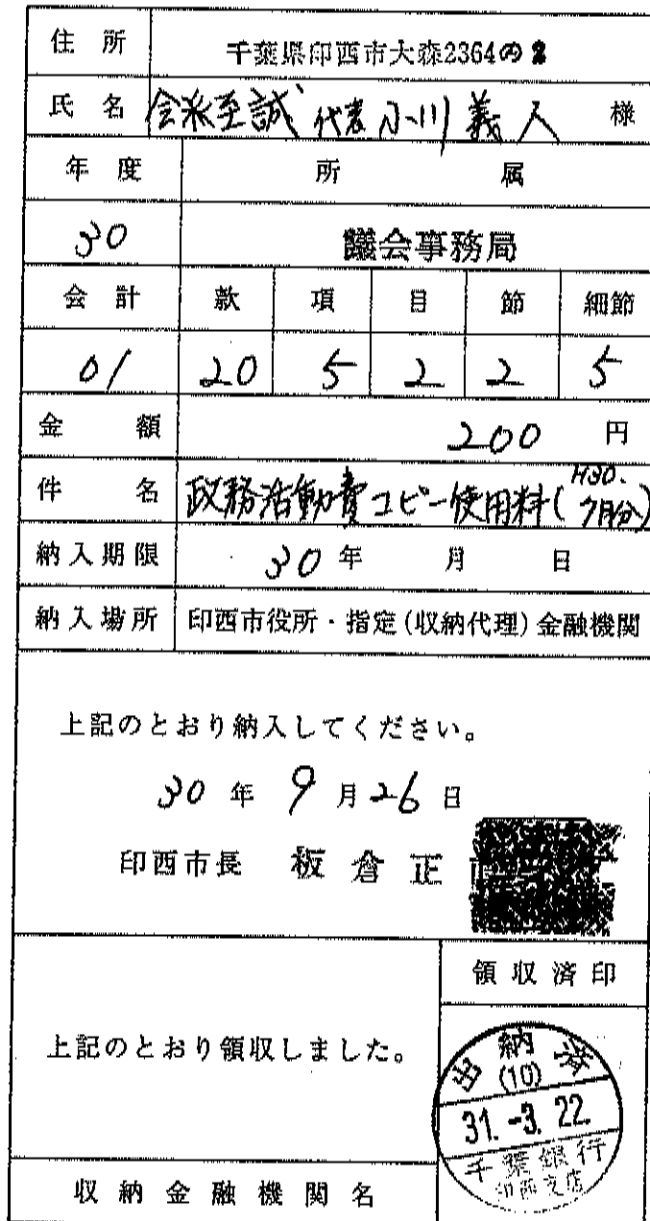 住所 千葉県印西市大森2364の2
氏名 会派至誠 代表 小川義人 様
年度 所属
30 議会事務局
会計 款 項 目 節 細節
01 20 5 2 2 5
金額 200 円
件名 政務活動費コピー使用料(H30.7月分)
納入期限 30年 月 日
納入場所 印西市役所・指定(収納代理)金融機関
上記のとおり納入してください。
30年9月26日
印西市長 板倉正
領収済印
上記のとおり領収しました。
出納済
(10)
31.-3.22.
千葉銀行
印西支店
収納金融機関名